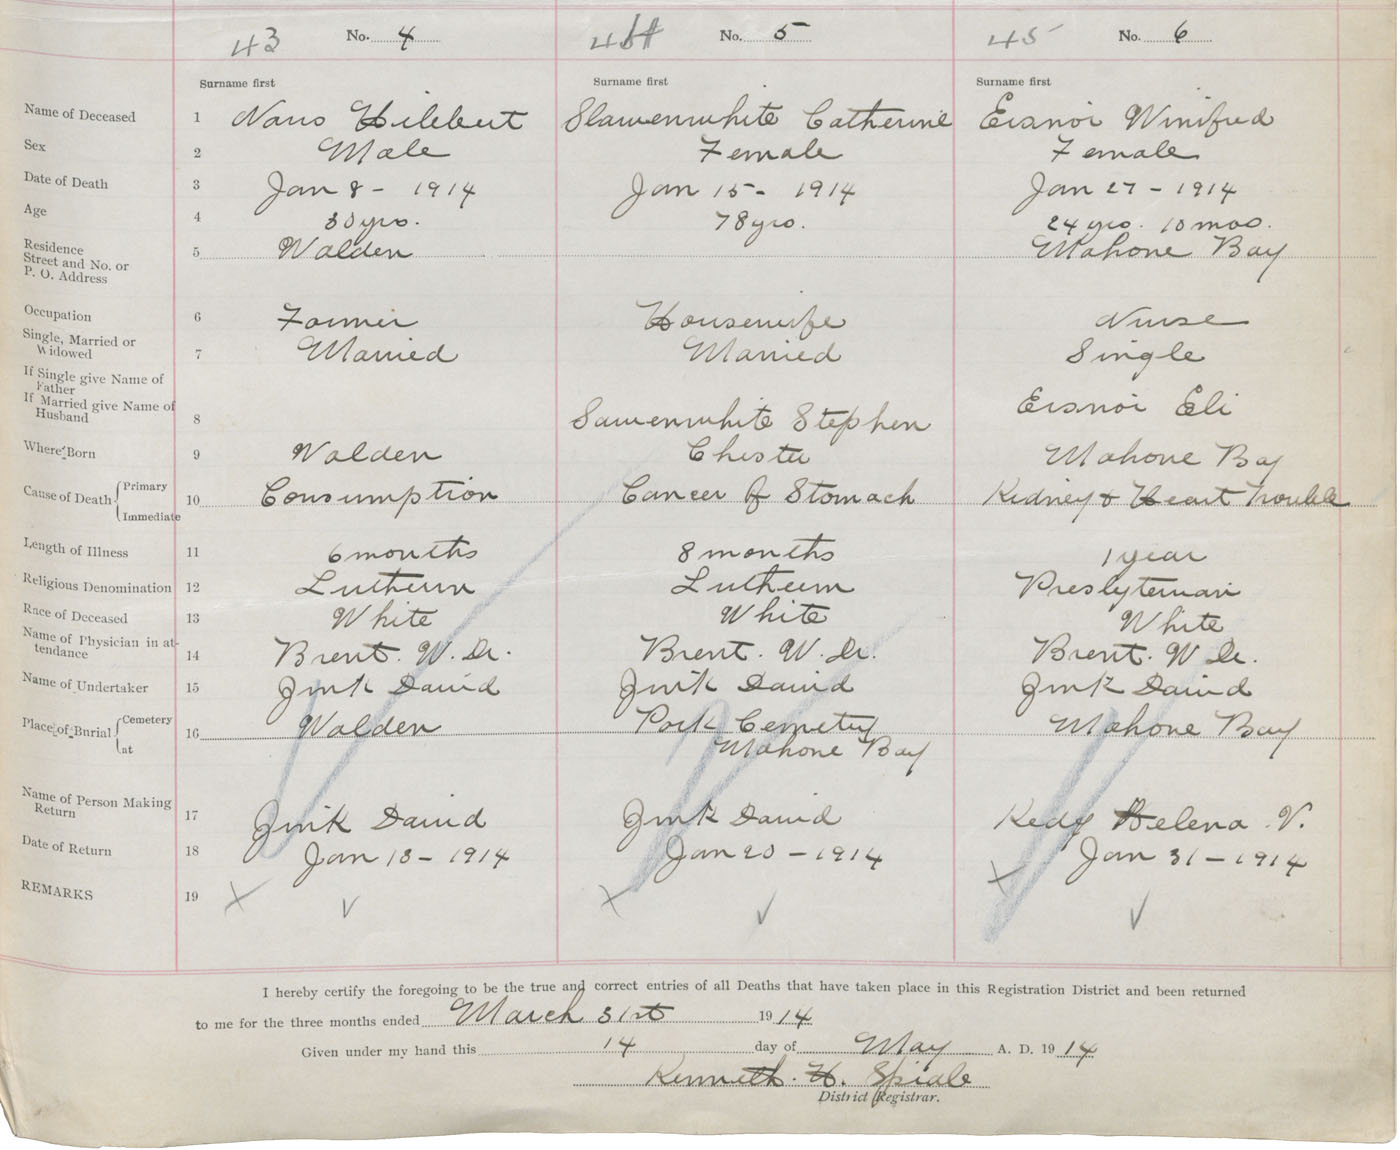 43 No. 4 No. 5 45 No. 6
Surname first Surname first Surname first
Name of Deceased 1 Naus Hilbert Slawenwhite Catherine Eisnor Winifred
Sex 2 Male Female Female
Date of Death 3 Jan 8 - 1914 Jan 15 - 1914 Jan 27 - 1914
Age 4 30 yrs. 78 yrs. 24 yrs. 10 mos.
Residence
Street and No. or
P. O. Address 5 Walden Mahone Bay
Occupation 6 Farmer Housewife Nurse
Single, Married or
Widowed 7 Married Married Single
If Single give Name of
Father
If Married give Name of
Husband 8 Sawenwhite Stephen Eisnor Eli
Where Born 9 Walden Chester Mahone Bay
Cause of Death { Primary
Immediate 10 Consumption Cancer of Stomach Kidney & Heart Trouble
Length of Illness 11 6 months 8 months 1 year
Religious Denomination 12 Lutheran Lutheran Presbyterian
Race of Deceased 13 White White White
Name of Physician in at-
tendance 14 Brent. W. Dr. Brent. W. Dr. Brent. W Dr.
Name of Undertaker 15 Zink David Zink David Zink David
Place of Burial { Cemetery
at 16 Walden Park Cemetery Mahone Bay
Mahone Bay
Name of Person Making
Return 17 Zink David Zink David Kedy Helena V.
Date of Return 18 Jan 13 - 1914 Jan 20 - 1914 Jan 31 - 1914
REMARKS 19 x ✓ x ✓ x ✓
I hereby certify the foregoing to be the true and correct entries of all Deaths that have taken place in this Registration District and been returned
to me for the three months ended March 31st 1914
Given under my hand this 14 day of May A. D. 1914
Kenneth. H. Spidle
District Registrar.